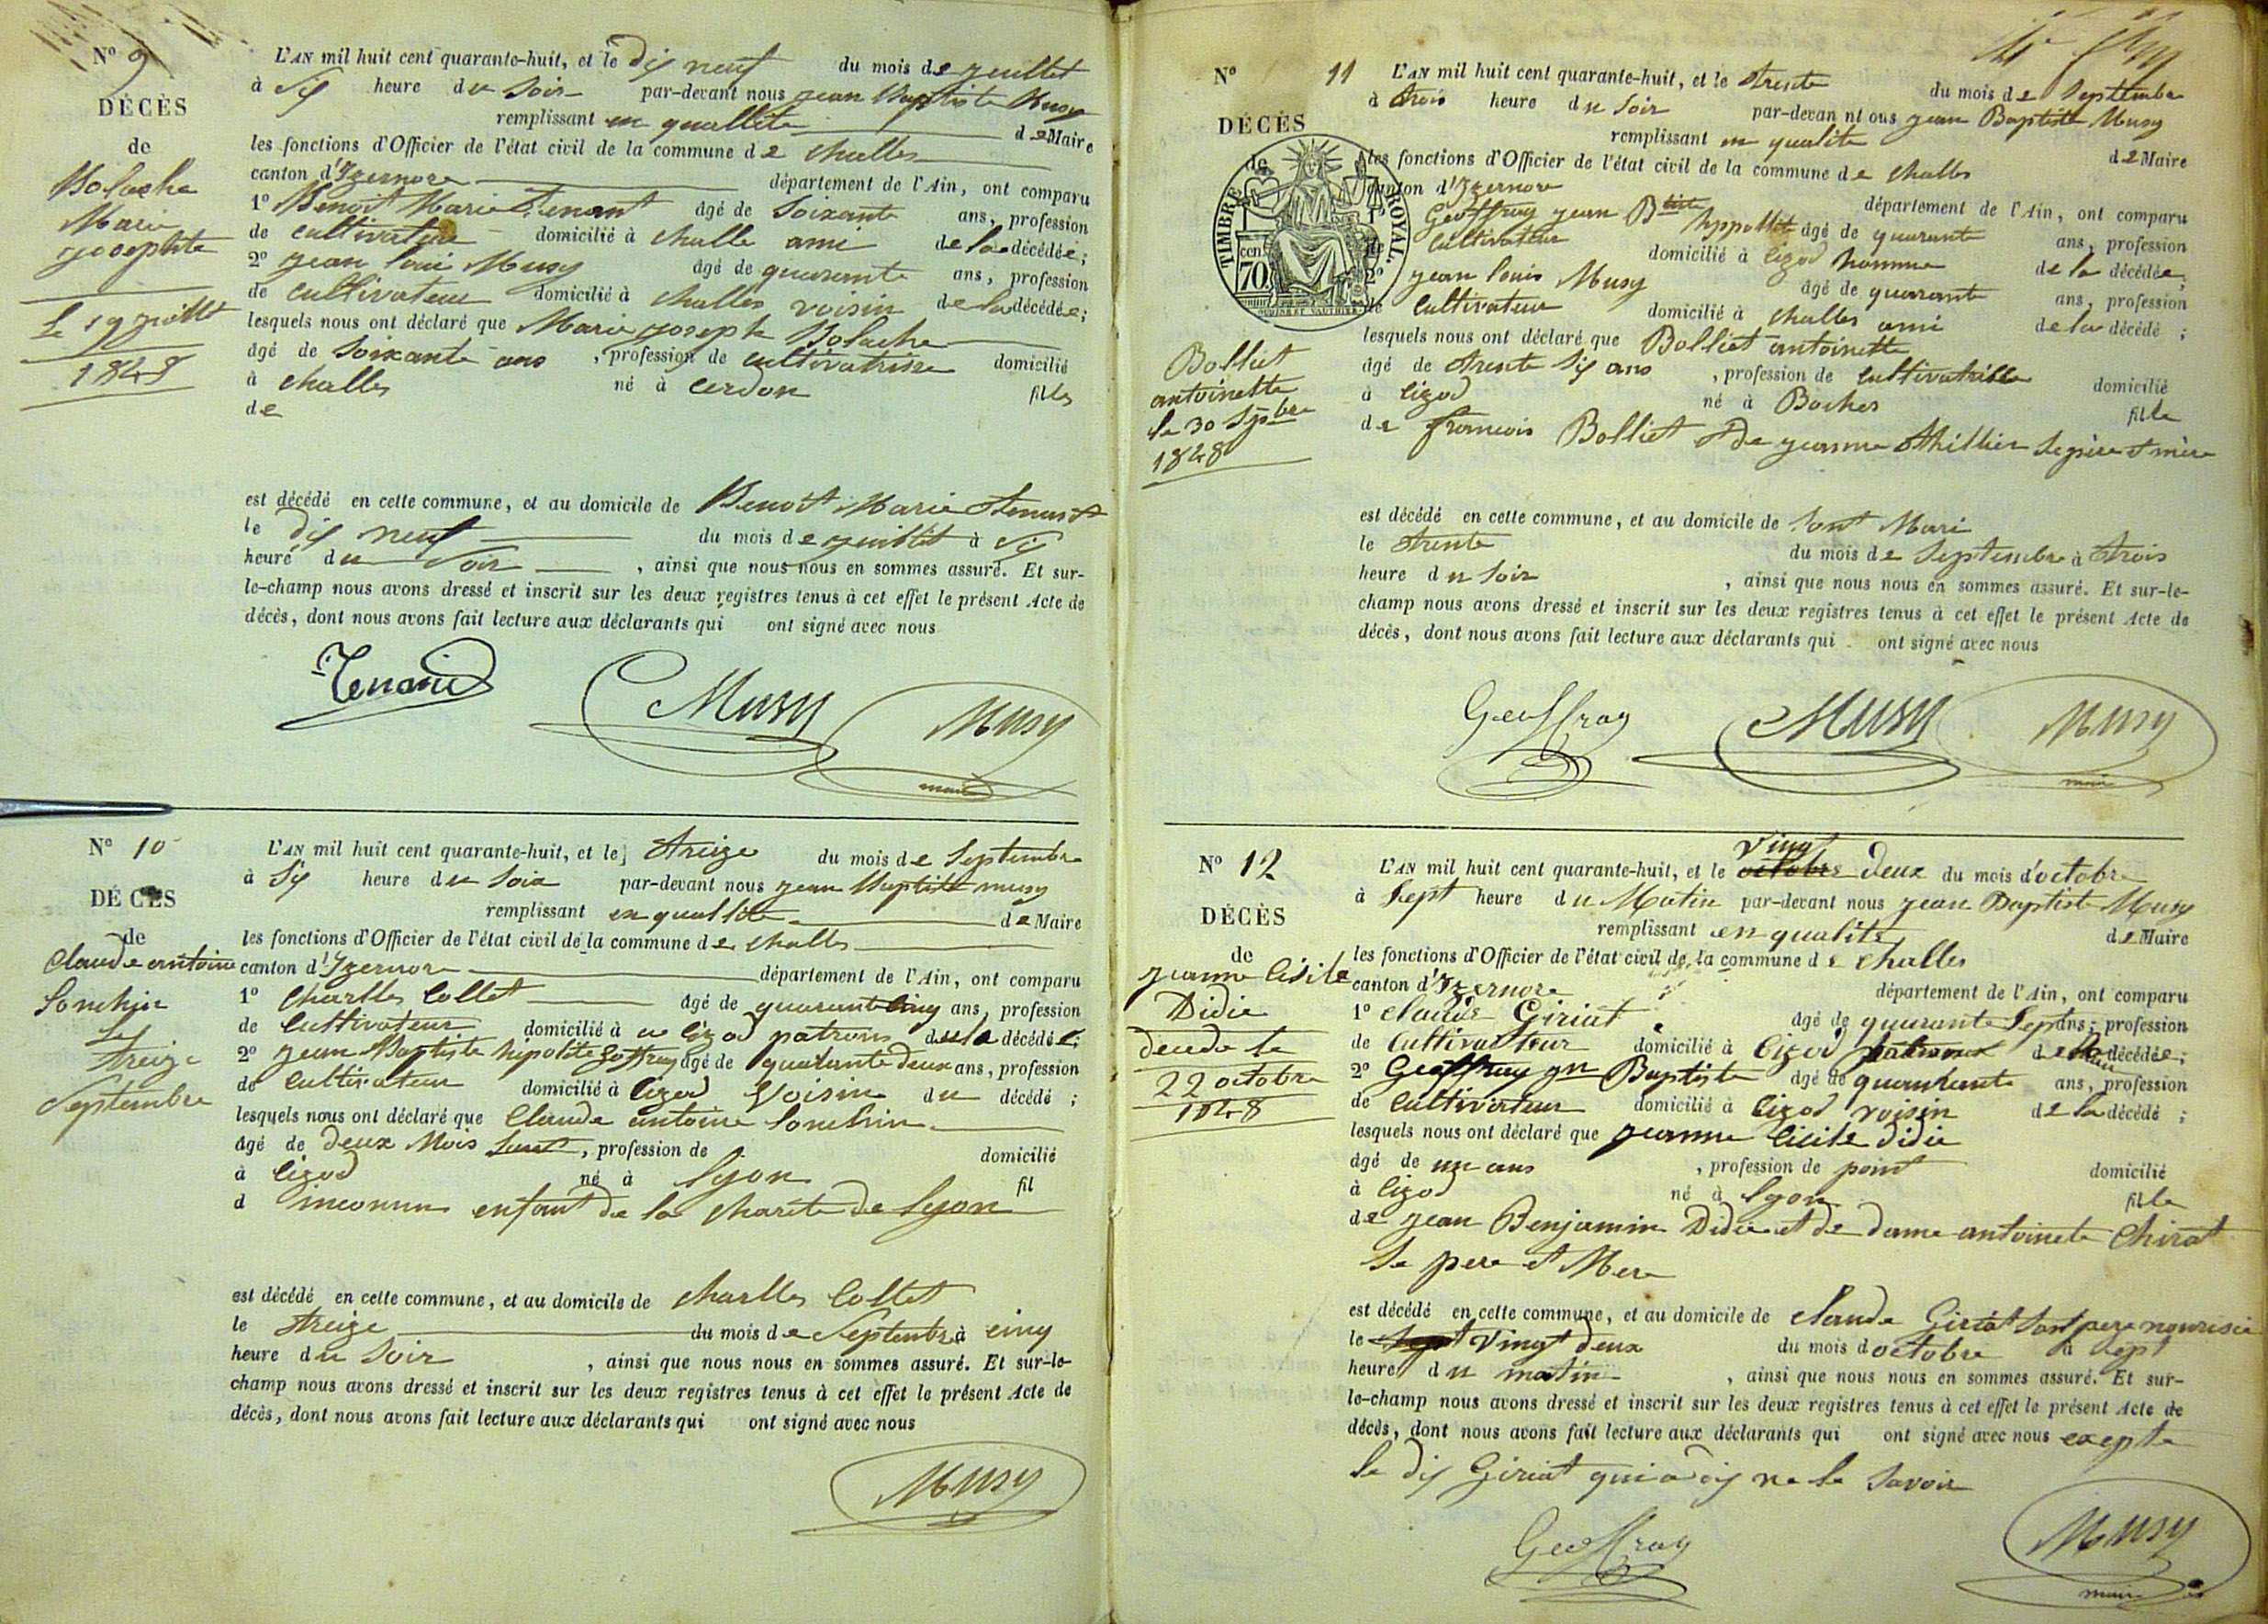 Nº 9
DÉCÈS
de
Bolache
Marie
josephte
le 19 juillet
1848
L'AN mil huit cent quarante-huit, et le dix neuf du mois de juillet
à six heure du soir par-devant nous jean Baptiste Musy
remplissant en quallité de Maire
les fonctions d'Officier de l'état civil de la commune de challes
canton d'Izernore département de l'Ain, ont comparu
1º Benoit Marie Tenant âgé de soixante ans, profession
de cultivateur domicilié à challe ami de la décédée;
2º jean loui Musy âgé de quarante ans, profession
de cultivateur domicilié à challes voisin de la décédée;
lesquels nous ont déclaré que Marie joseph Bolache
âgé de soixante ans, profession de cultivatrisse domicilié
à challes né à cerdon filles
de
est décédé en cette commune, et au domicile de Benoit Marie tenant
le dix neuf du mois de juillet à six
heure du soir, ainsi que nous nous en sommes assuré. Et sur-
le-champ nous avons dressé et inscrit sur les deux registres tenus à cet effet le présent Acte de
décès, dont nous avons fait lecture aux déclarants qui ont signé avec nous
Tenand Musy Musy
maire
Nº 10
DÉCÈS
de
Claude antoine
Sonchin
Le
treize
Septembre
L'AN mil huit cent quarante-huit, et le treize du mois de Septembre
à Six heure du Soir par-devant nous jean Baptiste musy
remplissant en quallité de Maire
les fonctions d'Officier de l'état civil de la commune de challes
canton d'Izernore département de l'Ain, ont comparu
1º Charlles Collet âgé de quarante cinq ans, profession
de Cultivateur domicilié à a Cizod patron du la décédé;
2º jean Baptiste hipolite Goffray âgé de quarante deux ans, profession
de Cultivateur domicilié à Cizod Voisin du décédé;
lesquels nous ont déclaré que Claude antoine Sonchin
âgé de deux Mois, profession de domicilié
à Cizod né à Lyon fil
d inconnu enfant de la charité de Lyon
est décédé en cette commune, et au domicile de Charlles Collet
le treize du mois de Septembre à cinq
heure du Soir, ainsi que nous nous en sommes assuré. Et sur-le-
champ nous avons dressé et inscrit sur les deux registres tenus à cet effet le présent Acte de
décès, dont nous avons fait lecture aux déclarants qui ont signé avec nous
Musy
Nº 11
DÉCÈS
de
TIMBRE ROYAL.
70 cen
Bolliet
antoinette
le 30 Spbre
1848
L'AN mil huit cent quarante-huit, et le trente du mois de Septembre
à trois heure du Soir par-devan nt ous jean Baptiste Musy
remplissant en qualite de Maire
les fonctions d'Officier de l'état civil de la commune de challes
canton d'Izernore département de l'Ain, ont comparu
1º Geoffray jean Btiste hyppollit âgé de quarante ans, profession
de Cultivateur domicilié à Cizod homme de la décédée;
2º jean louis Musy âgé de quarante ans, profession
de Cultivateur domicilié à challes ami de la décédé;
lesquels nous ont déclaré que Bolliet antoinette
âgé de trente Six ans, profession de Cultivatrisse domicilié
à Cizod né à Boches fille
de francois Bolliet et de jeanne thillier Se père et mère
est décédé en cette commune, et au domicile de Sont Mari
le trente du mois de Septembre à trois
heure du Soir, ainsi que nous nous en sommes assuré. Et sur-le-
champ nous avons dressé et inscrit sur les deux registres tenus à cet effet le présent Acte de
décès, dont nous avons fait lecture aux déclarants qui ont signé avec nous
Geoffray Musy Musy
maire
Nº 12
DÉCÈS
de
jeanne Cisile
Didie
decede le
22 octobre
1848
L'AN mil huit cent quarante-huit, et le octobre Vingt deux du mois d'octobre
à Sept heure du Matin par-devant nous jean Baptist Musy
remplissant en qualite de Maire
les fonctions d'Officier de l'état civil de la commune de challes
canton d'Izernore département de l'Ain, ont comparu
1º claude Giriat âgé de quarante Sept ans, profession
de Cultivateur domicilié à Cizod de la décédée;
2º Geoffray jn Baptiste âgé de quarante ans, profession
de Cultivateur domicilié à Cizod voisin de la décédé;
lesquels nous ont déclaré que jeanne Cicile didie
âgé de un ans, profession de point domicilié
à Cizod né à Lyon fille
de jean Benjamin Didie et de dame antoinete Chirat
Se pere et Mere
est décédé en cette commune, et au domicile de claude Giriat Sont pere nourisie
le Sept Vingt deux du mois d octobre à Sept
heure du matin, ainsi que nous nous en sommes assuré. Et sur-
le-champ nous avons dressé et inscrit sur les deux registres tenus à cet effet le présent Acte de
décès, dont nous avons fait lecture aux déclarants qui ont signé avec nous exepte
le dis Giriat qui a dis ne le Savoir
Geoffray Musy
maire